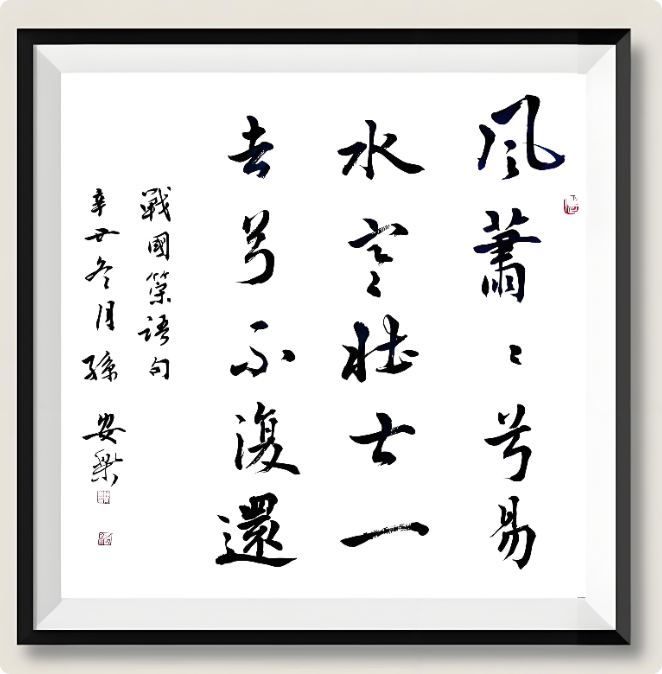 風蕭〻兮易
水寒壮士一
去兮不復還
戰國策語句
辛丑冬月孫安樂